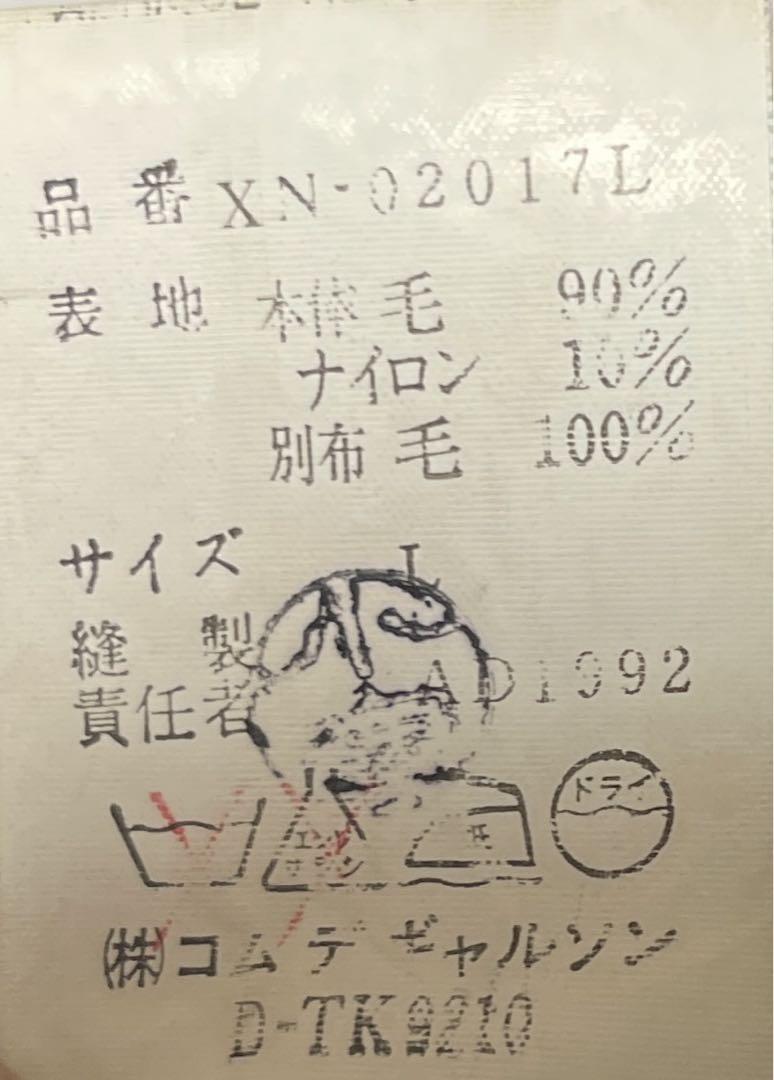 品番 XN-02017L
表地 本体 毛 90%
ナイロン 10%
別布 毛 100%
サイズ L
縫製
責任者 AD1992
ドライ
㈱コム デ ギャルソン